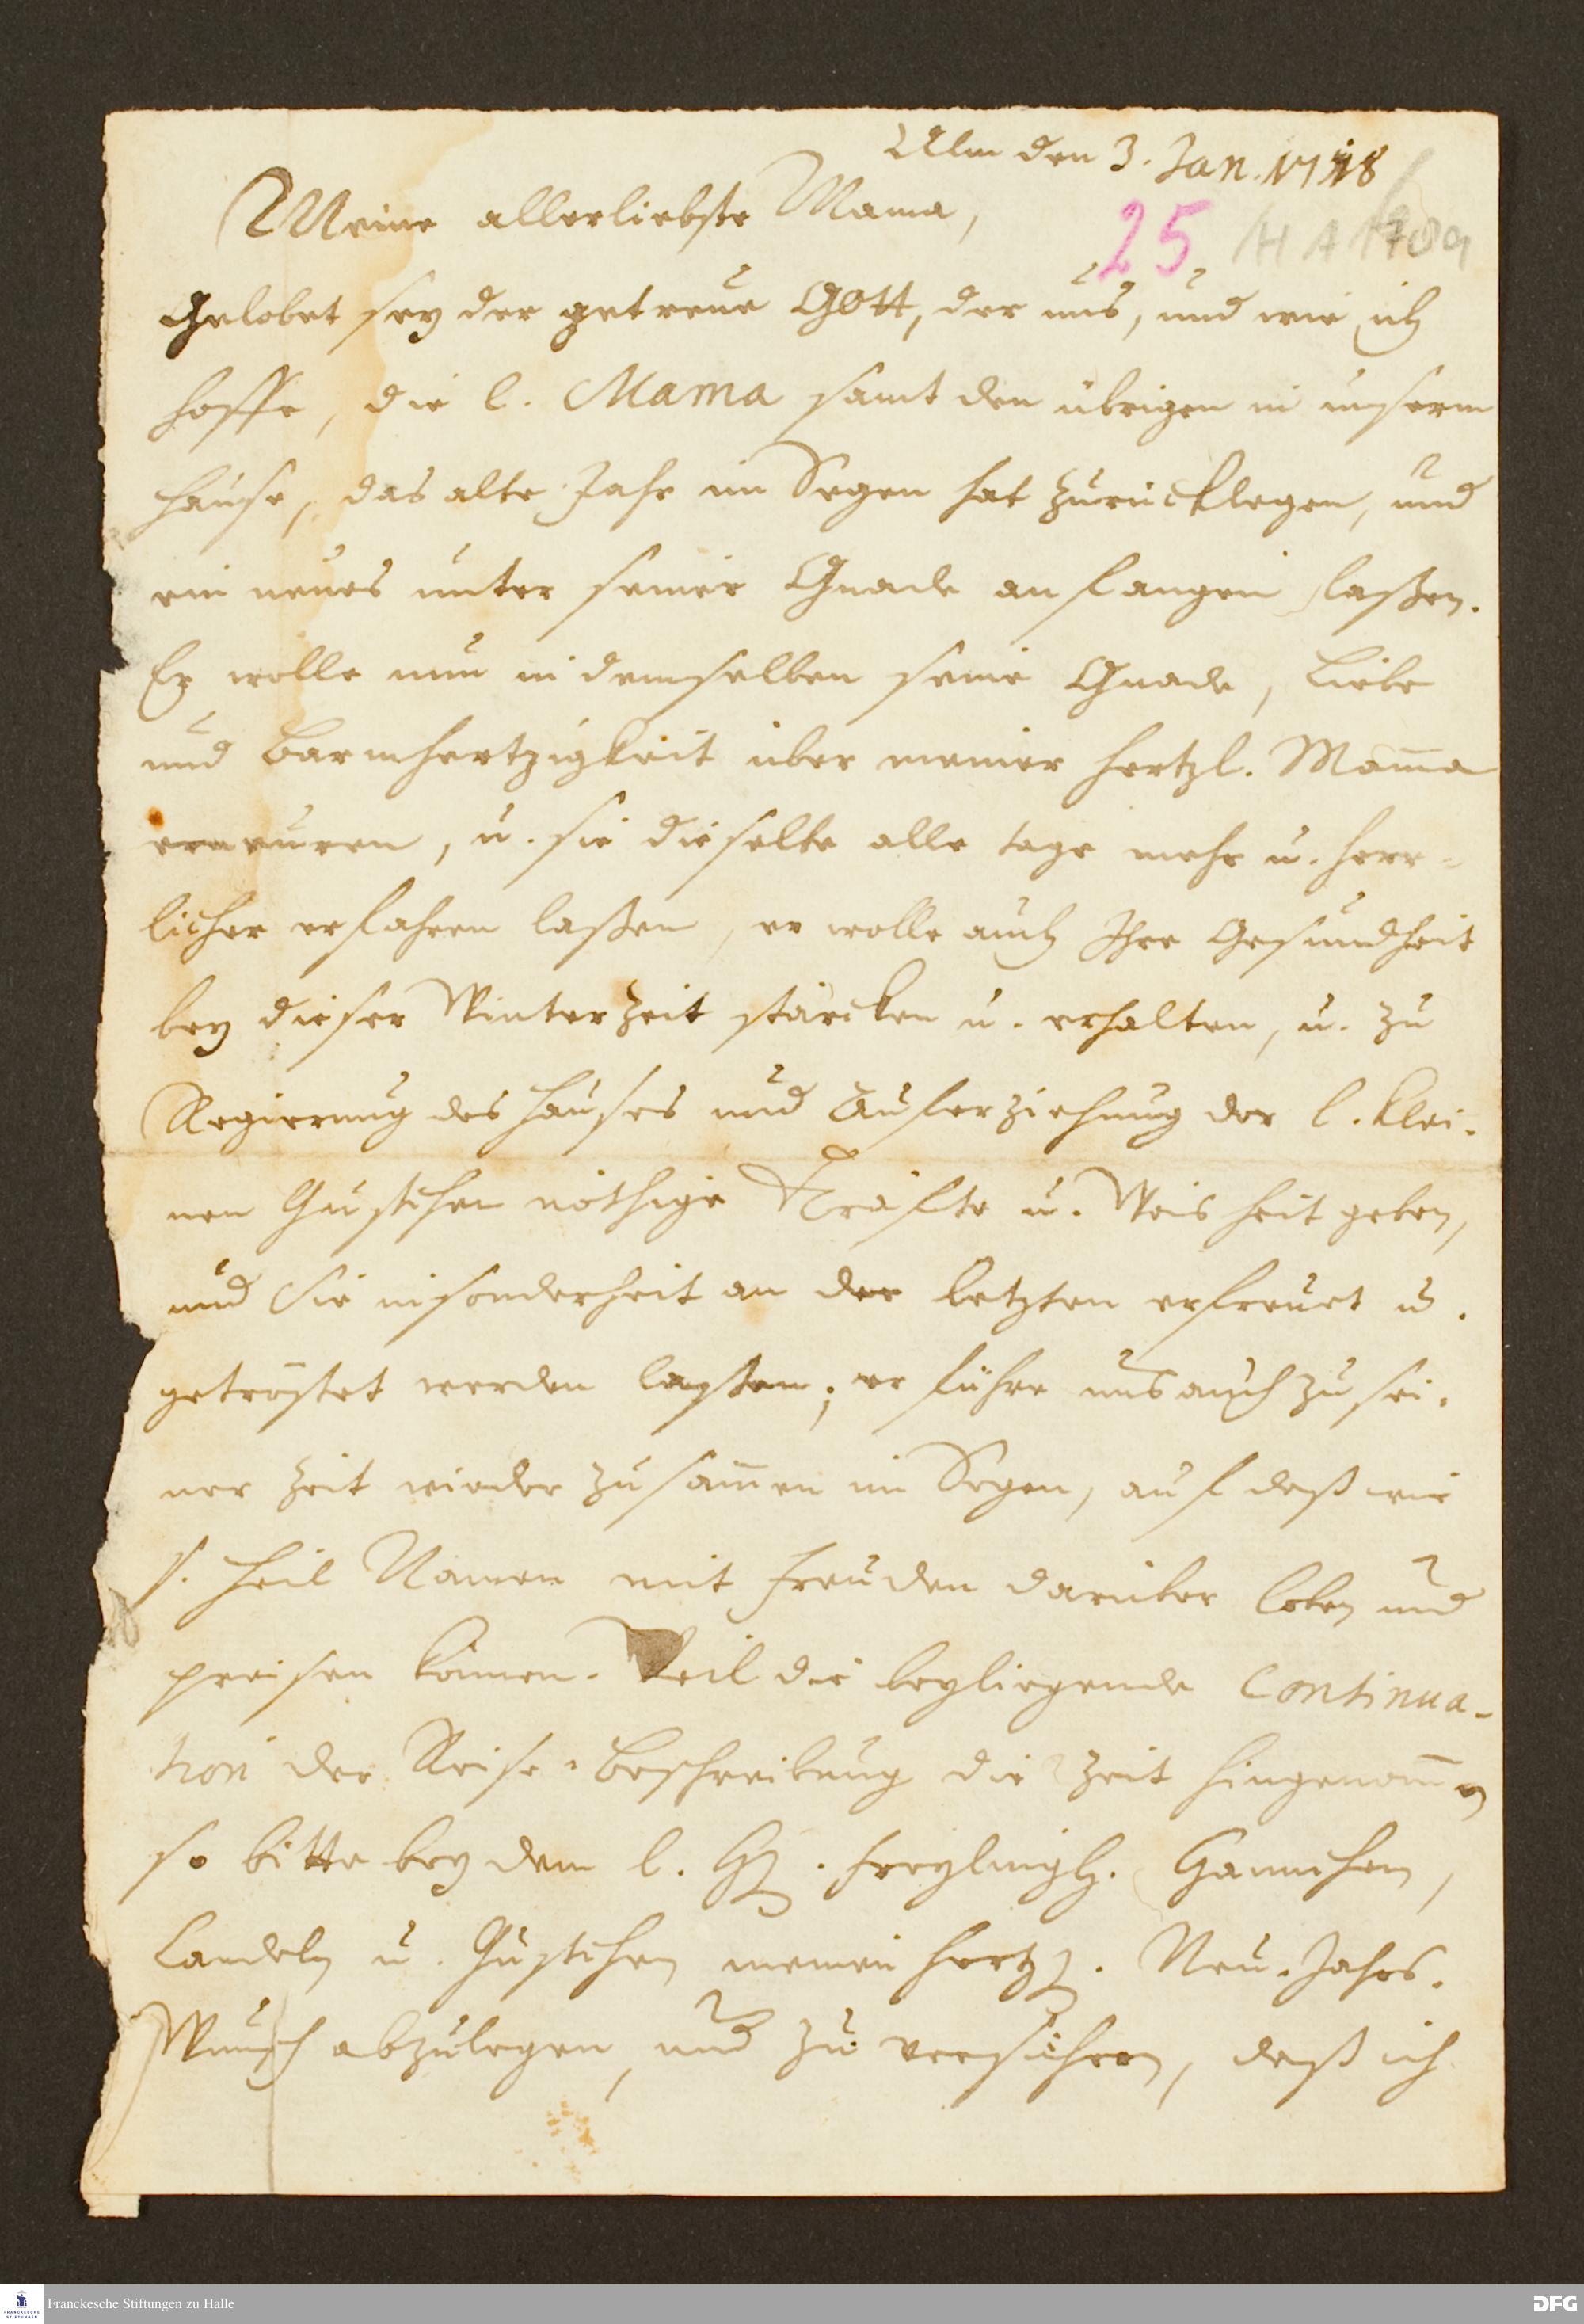 Ulm den 3. Jan. 1718
Meine allerliebste Mama,
25 HA 170a
Gelobet sey der getreue GOtt, der uns, und wie ich
hoffe, die l. Mama samt den übrigen in unserm
Hause, das alte Jahr im Segen hat zurücklegen, und
ein neues unter seiner Gnade anfangen laßen.
Er wolle nun in demselben seine Gnade, Liebe
und Barmhertzigkeit über meiner hertzl. Mam̅a
erneuren, u. sie dieselbe alle tage mehr u. herr-
licher erfahren laßen, er wolle auch Ihre Gesundheit
bey dieser Winterzeit stärcken u. erhalten, u. zu
Regierung des Hauses und Auferziehung der l. klei-
nen Gustchen nöthige Kräfte u. Weisheit geben,
und Sie insonderheit an der letzten erfreuet u.
getröstet werden laßen; er führe uns auch zu sei-
ner Zeit wieder zusam̅en im Segen, auf daß wir
s. heil Namen mit Freuden darüber loben und
preisen können. Weil die beyliegende Continua-
tion der Reise-Beschreibung die Zeit hingenom̅en
so bitte bey dem l. H. Freylingh. Hannchen,
u. Gustchen meinen hertzl. Neu-Jahrs-
Wunsch abzulegen, und zu versichern, daß ich
Franckesche Stiftungen zu Halle
DFG